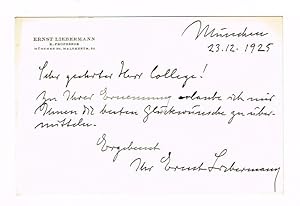 ERNST LIEBERMANN
K. PROFESSOR
MÜNCHEN
München
23.12.1925
Sehr geehrter Herr College!
Zu Ihrer Ernennung erlaube ich mir
Ihnen die besten Glückwünsche zu über-
mitteln.
Ergebenst
Ihr Ernst Liebermann